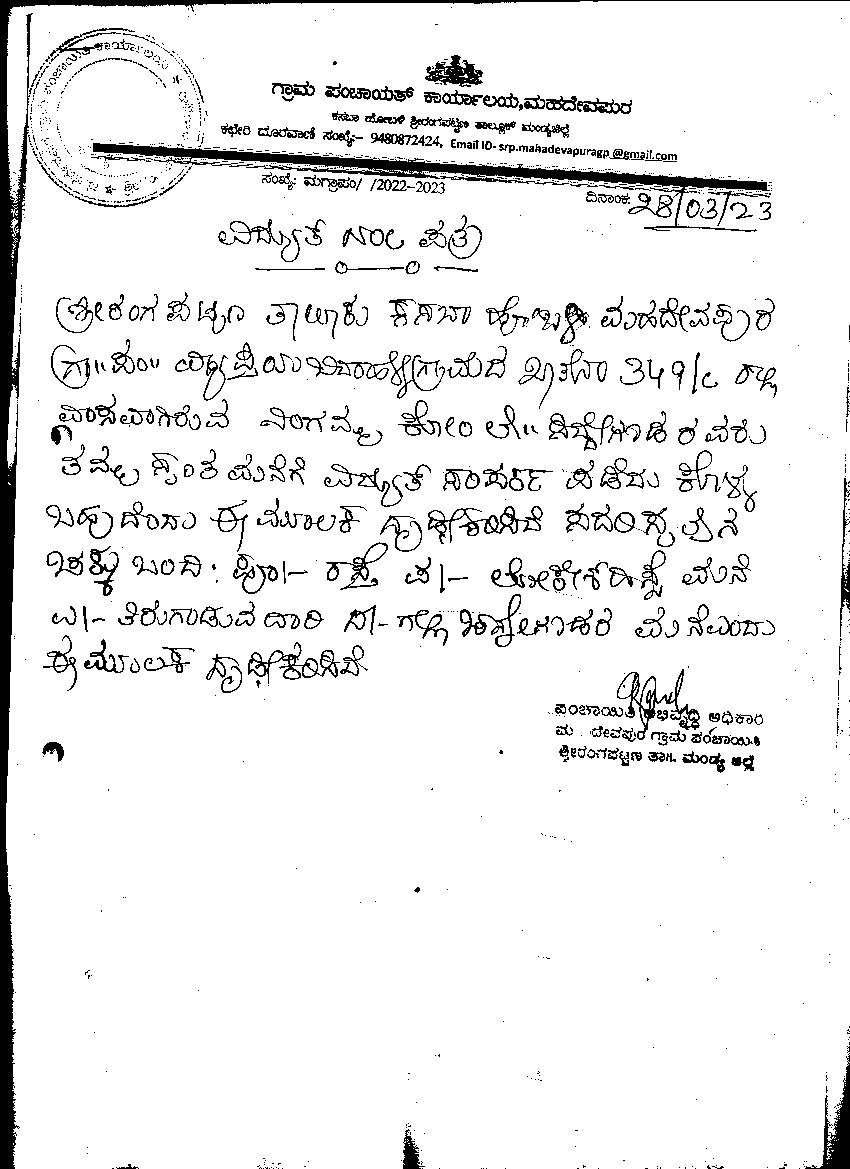 ಗ್ರಾಮ ಪಂಚಾಯತ್ ಕಾರ್ಯಾಲಯ,ಮಹದೇವಪುರ
ಕಸಬಾ ಹೋಬಳಿ ಶ್ರೀರಂಗಪಟ್ಟಣ ತಾಲ್ಲೂಕ್ ಮಂಡ್ಯಜಿಲ್ಲೆ
ಕಛೇರಿ ದೂರವಾಣಿ ಸಂಖ್ಯೆ:- 9480872424, Email ID- srp.mahadevapuragp@gmail.com
ಸಂಖ್ಯೆ: ಮಗ್ರಾಪಂ/ /2022-2023
ದಿನಾಂಕ: 28/03/23
ವಿದ್ಯುತ್ ಪತ್ರ
ಶ್ರೀರಂಗಪಟ್ಟಣ ತಾಲ್ಲೂಕು ಕಸಬಾ ಹೋಬಳಿ ಮಹದೇವಪುರ
ಗ್ರಾ" ಪಂ" ಗ್ರಾಮದ 349/ ರಲ್ಲಿ
ವಾಸವಾಗಿರುವ ನಿಂಗಮ್ಮ ಕೋಂ ಲೇ" ರವರು
ತಮ್ಮ ಸ್ವಂತ ಮನೆಗೆ ವಿದ್ಯುತ್ ಸಂಪರ್ಕ ಪಡೆದು ಕೊಳ್ಳ
ಬಹುದೆಂದು ಈ ಮೂಲಕ ದೃಢೀಕರಿಸಿದೆ
ಚಕ್ಕು ಬಂದಿ: ಪೂ/- ರಸ್ತೆ ಪ/- ಮನೆ
ಉ/- ತಿರುಗಾಡುವ ದಾರಿ ದ/- ಗಲ್ಲಿ ಮನೆಎಂದು
ಈ ಮೂಲಕ ದೃಢೀಕರಿಸಿದೆ
ಪಂಚಾಯಿತಿ ಅಭಿವೃದ್ಧಿ ಅಧಿಕಾರಿ
ಮ ದೇವಪುರ ಗ್ರಾಮ ಪಂಚಾಯಿತಿ
ಶ್ರೀರಂಗಪಟ್ಟಣ ತಾ॥. ಮಂಡ್ಯ ಜಿಲ್ಲೆ